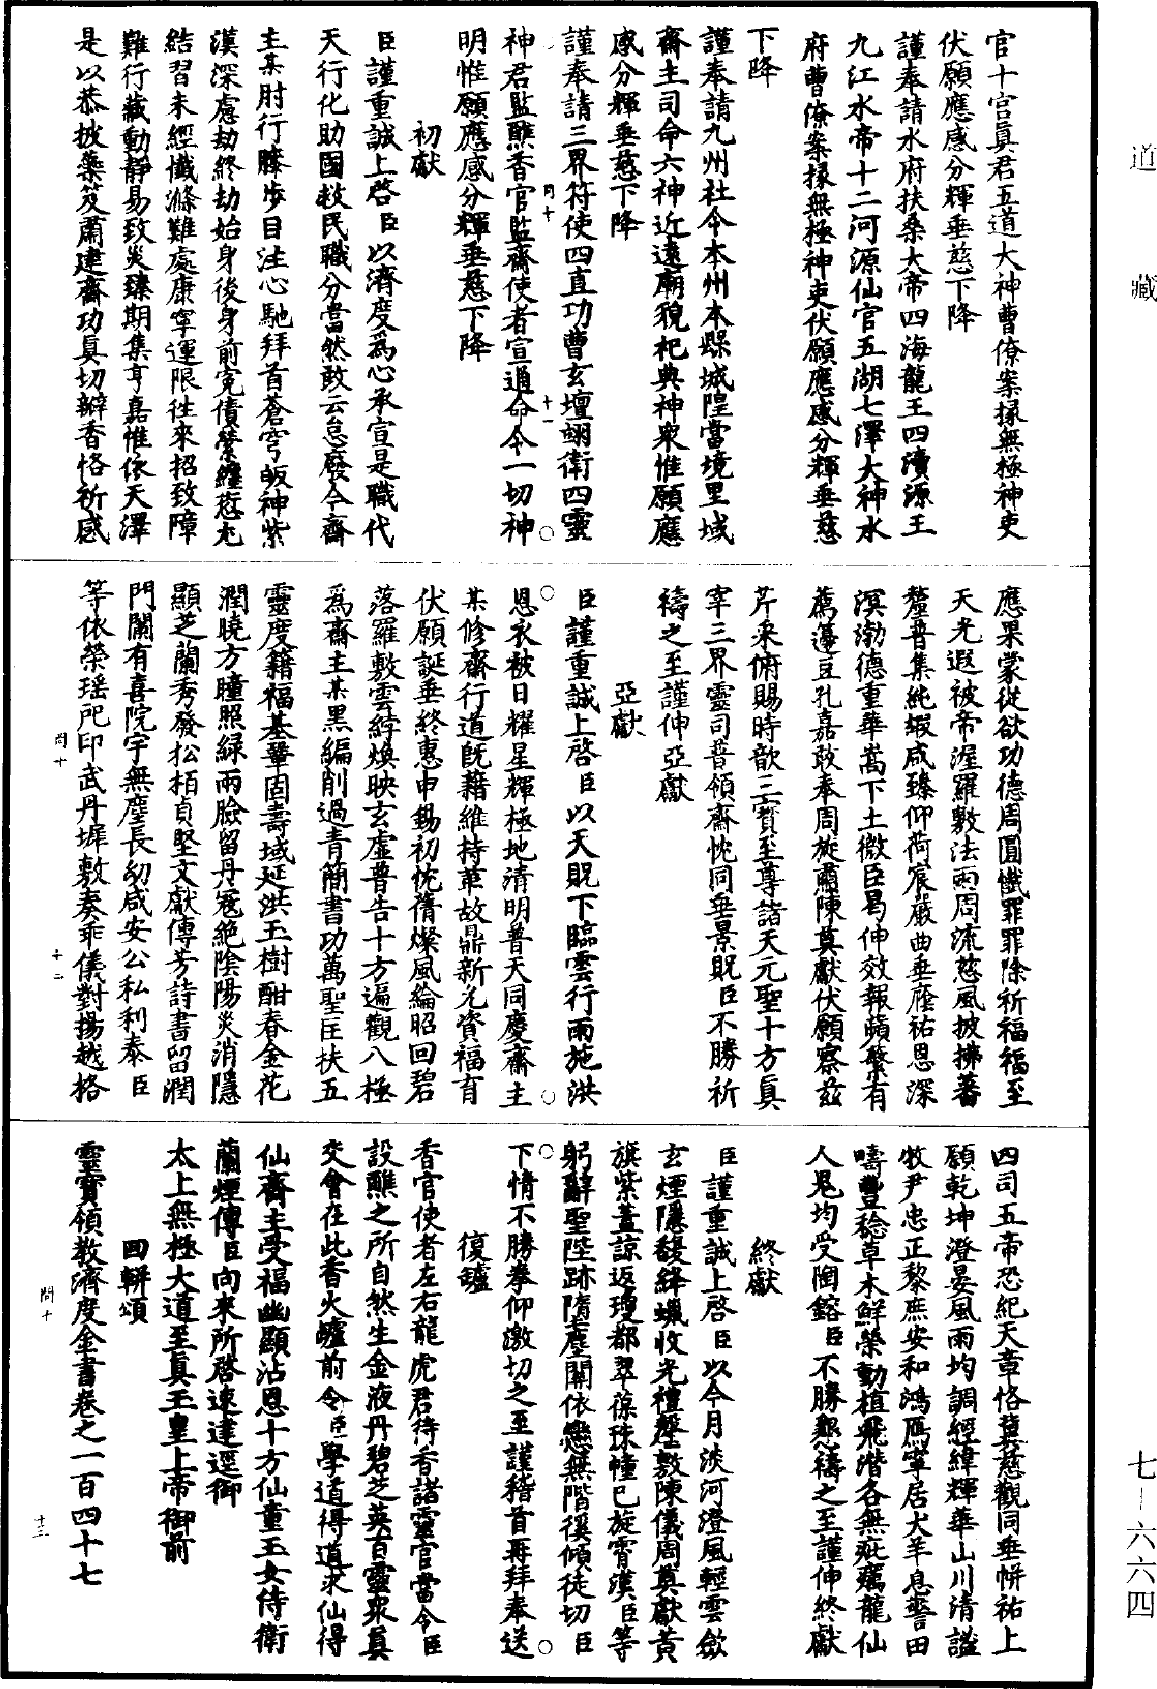 道藏
七－六六四
官十宮眞君五道大神曹僚案掾無極神吏
伏願應感分輝垂慈下降
謹奉請水府扶桑大帝四海龍王四瀆源王
九江水帝十二河源仙官五湖七澤大神水
府曹僚案掾無極神吏伏願應感分輝垂慈
下降
謹奉請九州社令本州本縣城隍當境里域
齋主司命六神近遠廟貌祀典神衆惟願應
感分輝垂慈下降
謹奉請三界符使四直功曹玄壇翊衛四靈
神君監醮香官監齋使者宣通命令一切神
明惟願應感分輝垂慈下降
初獻
臣謹重誠上啓臣以濟度爲心承宣是職代
天行化助國救民職分當然敢云怠廢今齋
主某肘行膝步目注心馳拜首蒼穹皈神紫
漢深慮劫終劫始身後身前寃債縈纏愆尤
結習未經懺滌難處康寧運限徃來招致障
難行藏動靜易致災臻期集亨嘉惟依天澤
是以恭披蘂笈肅建齋功眞切辦香恪祈感
應果蒙從欲功德周圓懺罪罪除祈福福至
天光遐被帝渥羅敷法雨周流慈風披拂蕃
釐普集純嘏咸臻仰荷宸嚴曲垂庥祐恩深
溟渤德重華嵩下土微臣曷伸效報蘋蘩有
薦籩豆孔嘉敢奉周旋肅陳奠獻伏願察兹
芹采俯賜時歆三寳至尊諸天元聖十方眞
宰三界靈司普領齋忱同垂景貺臣不勝祈
禱之至謹伸亞獻
亞獻
臣謹重誠上啓臣以天貺下臨雲行雨施洪
恩永被日耀星輝極地清明普天同慶齋主
某修齋行道旣藉維持革故鼎新允資福育
伏願誕垂終惠申錫初忱脩燦風綸昭回碧
落羅敷雲綍煥映玄虛普告十方遍觀八極
爲齋主某黑編削過青簡書功萬聖匡扶五
靈度籍福基鞏固壽域延洪玉樹酣春金花
潤曉方瞳照緑兩臉留丹寇絶陰陽災消隱
顯芝蘭秀發松栢貞堅文獻傳芳詩書留潤
門闌有喜院宇無塵長幼咸安公私利泰臣
等依榮瑶陛印武丹墀敷奏乖儀對揚越格
四司五帝恐紀天章恪冀慈觀同垂帡祐上
願乾坤澄晏風雨均調經緯輝華山川清謐
牧尹忠正黎庶安和鴻鴈寧居犬羊息警田
疇豐稔草木鮮榮動植飛潛各無疵癘龍仙
人鬼均受陶鎔臣不勝懇禱之至謹伸終獻
終獻
臣謹重誠上啓臣以今月淡河澄風輕雲歛
玄煙隱馥絳蠟收光禮罄敷陳儀周奠獻黃
旗紫蓋諒返瓊都翠葆珠幢已旋霄漢臣等
躬辭聖陛跡隋塵闤依戀無階徯傾徒切臣
下情不勝拳仰激切之至謹稽首再拜奉送
復罏
香官使者左右龍虎君侍香諸靈官當令臣
設醮之所自然生金液丹碧芝英百靈衆眞
交會在此香火罏前令臣學道得道求仙得
仙齋主受福幽顯沾恩十方仙童玉女侍衛
蘭煙傳臣向來所啓速達逕御
太上無極大道至眞玉皇上帝御前
回軿頌
靈寳領教濟度金書卷之一百四十七
問十
十一
問十
十二
問十
十三